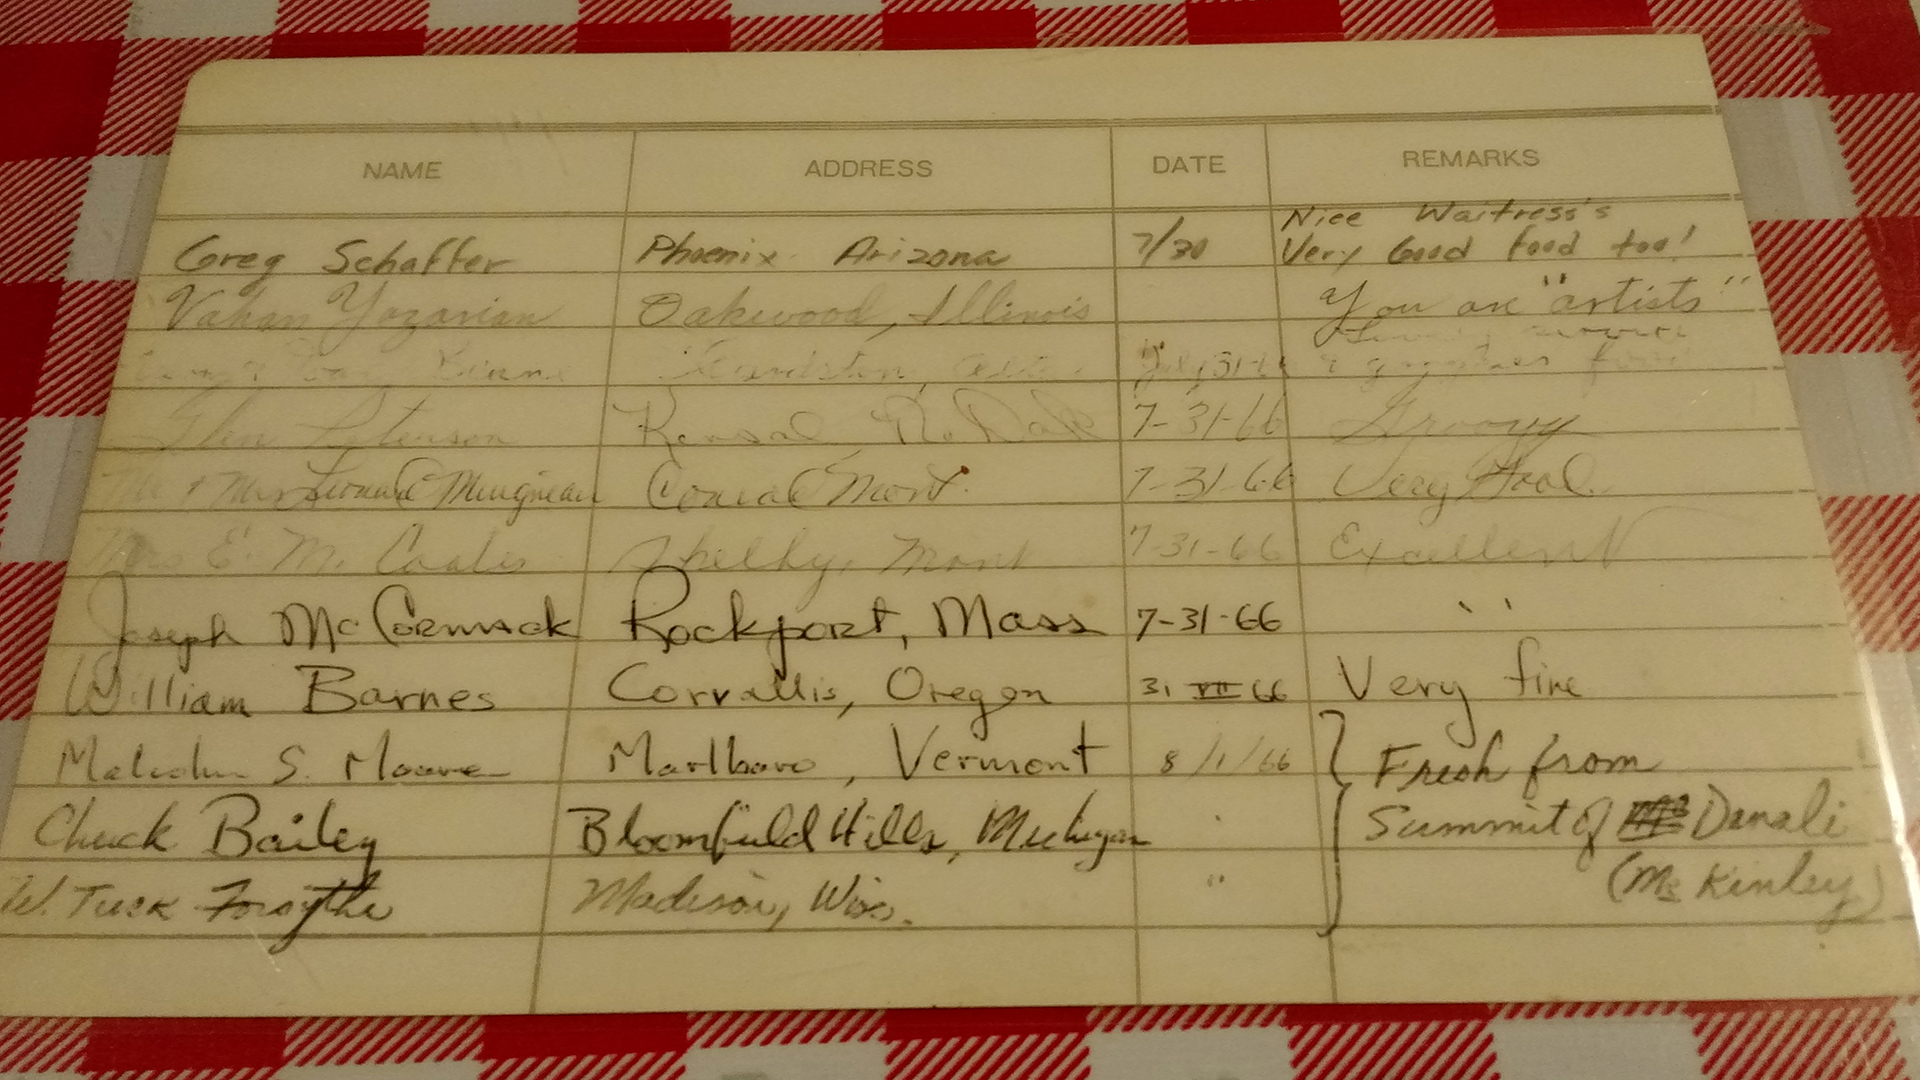 NAME ADDRESS DATE REMARKS
Nice Waitress's
Greg Schaffer Phoenix Arizona 7/30 Very Good food too!
Vahan Yazarian Oakwood, Illinois You are "artists"
July 31-66 &
Glen Peterson Kensal N. Dak 7-31-66 Groovy
Mr & Mrs Conrad Mont. 7-31-66 Very Good
Mrs E. M. Coales Shelby, Mont 7-31-66 Excellent
Joseph McCormack Rockport, Mass 7-31-66 " "
William Barnes Corvallis, Oregon 31 VII 66 Very fine
Malcolm S. Moore Marlboro, Vermont 8/1/66 Fresh from
Chuck Bailey Bloomfield Hills, Michigan " Summit of Denali
W. Tuck Forsythe Madison, Wisc. " (Mc Kinley)